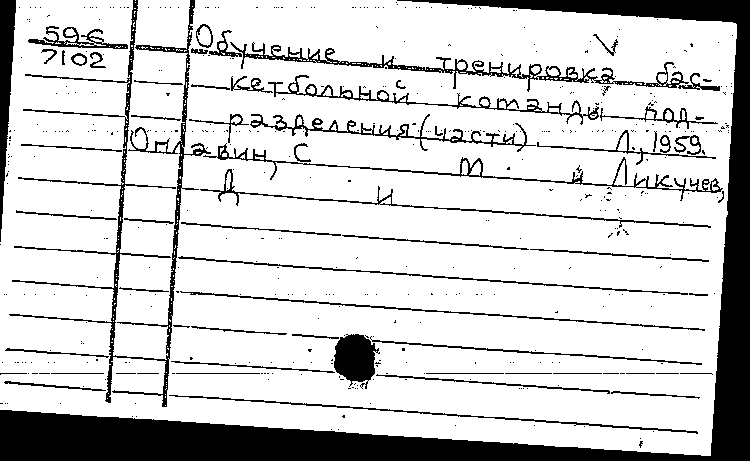 59-6
7102
Обучение и тренировка бас-
кетбольной команды под-
разделения (части). Л., 1959.
С М и Ликучев,
Д И